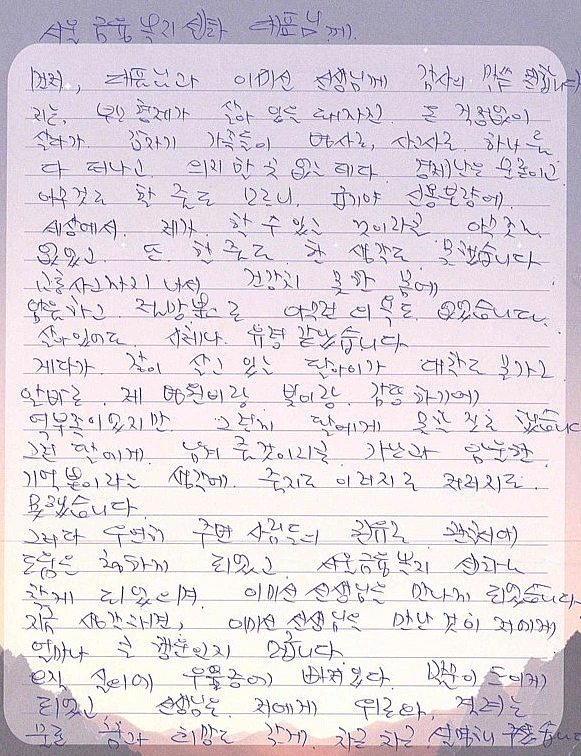 서울 금융 복지 센터 대표님께.
먼저, 대표님과 이미선 선생님께 감사의 말씀 전합니다
저는, 부모 형제가 살아 있을 때까진 큰 걱정없이
살다가 갑자기 가족들이 병사로, 사고사로 하나 둘
다 떠나고 의지할 곳 없는 데다 경제난은 물론이고
아무것도 할 줄도 모르니, 급기야 신용불량에.
세상에서 제가 할 수 있는 것이라곤 아무것도
없었고 또 한 줄도 한 생각도 못했습니다
교통사고까지 나서 건강치 못한 몸에
암울하고 절망뿐으로 아무런 의욕도 없었습니다.
살아있어도 시체나 유령 같았습니다
게다가 같이 살고 있는 딸아이가 대학도 못가고
알바로 제 병원비랑 빚이랑 감당하기에
역부족이었지만 그렇게 딸에게 못할 짓을 했습니다
그런 딸에게 남겨 줄것이라곤 가난과 암울한
기억뿐이라는 생각에 죽지도 이러지도 저러지도
못했습니다
그러다 우연히 주변 사람들의 권유로 관청에
도움을 청하게 되었고 서울금융복지 센터를
찾게 되었으며 이미선 선생님을 만나게 되었습니다
지금 생각하면, 이미선 선생님을 만난 것이 저에게
얼마나 큰 행운인지 모릅니다
오직 실의에 우울증에 빠져있다 도움이 되게
되었고 선생님은 저에게 위로와, 격려는
물론 용기 희망도 갖게 차근 차근 설명해 주셨습니다